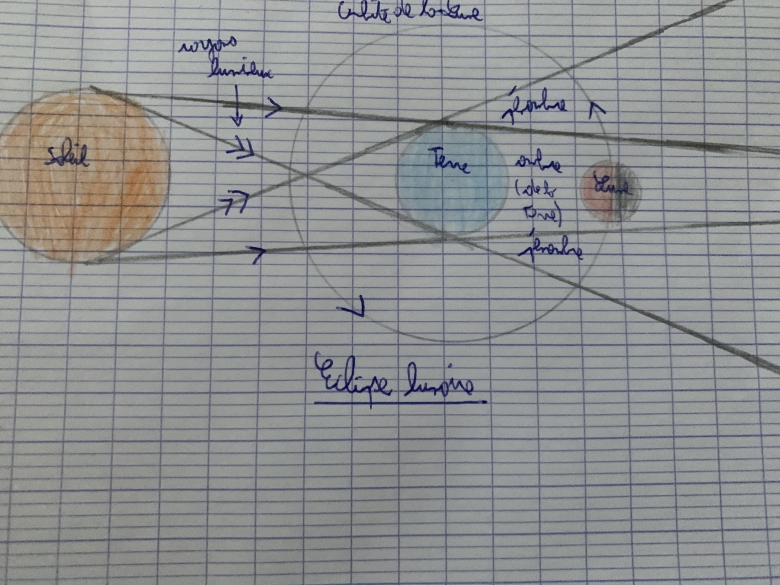 Orbite de la Lune
rayons
lumineux
pénombre
Soleil
Terre
ombre
(de la
Terre)
Lune
pénombre
Eclipse lunaire